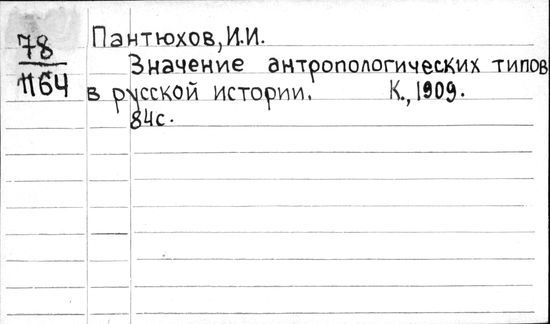 78
1164
Пантюхов, И.И.
Значение антропологических типов
в русской истории. К., 1909.
84с.